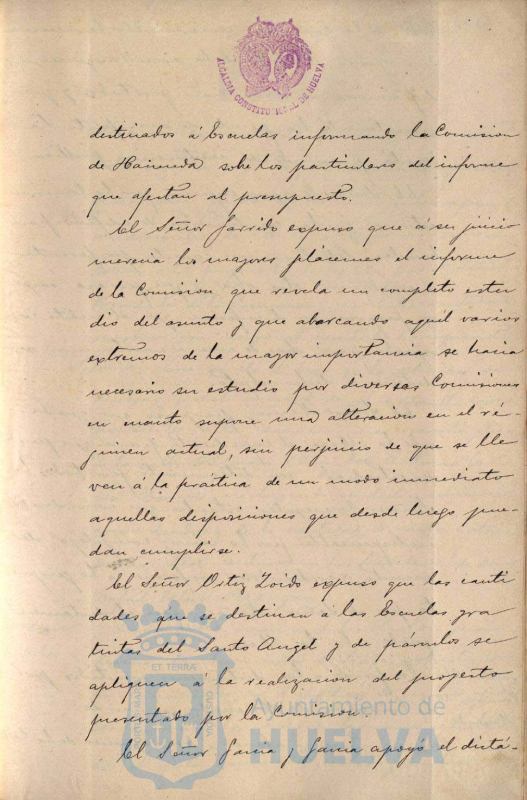 ALCALDIA CONSTITUCIONAL DE HUELVA
destinados á Escuelas informando la Comision
de Hacienda sobe los particulares del informe
que afectan al presupuesto.
El Señor Garrido expuso que á su juicio
merecia los mayores plácemes el informe
de la Comision que revela un completo estu
dio del asunto y que abarcando aquél varios
extremos de la mayor importancia se hacia
necesario su estudio por diversas Comisiones
en cuanto supone una alteracion en el ré-
gimen actual, sin perjuicio de que se lle
ven á la práctica de un modo inmediato
aquellas disposiciones que desde luego pue-
dan cumplirse.
El Señor Ortiz Zoido expuso que las canti
dades que se destinan á las Escuelas gra
tuitas del Santo Angel y de párvulos se
apliquen á la realizacion del proyecto
presentado por la Comision.
El Señor Garcia y Garcia apoyó el dictá-
ET TERRÆ
Ayuntamiento de
HUELVA